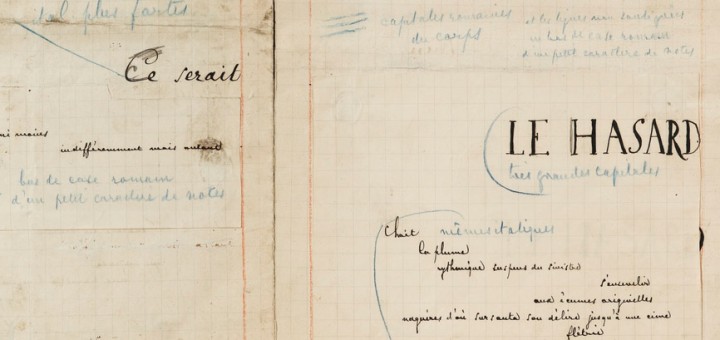 ital plus fortes
Ce serait
ni moins
indifféremment mais autant
bas de casse romain
d'un petit caractère de notes
capitales romaines
du corps
et les lignes non soulignées
en bas de casse romain
d'un petit caractère de notes
LE HASARD
très grandes capitales
Choit mêmes italiques
la plume
rythmique suspens du sinistre
s'ensevelir
aux écumes originelles
naguères d'où sursauta son délire jusqu'à une cime
flétrie